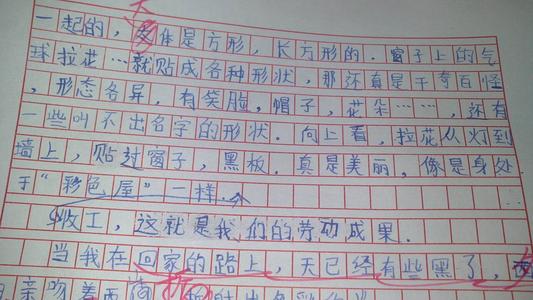 一起的，大体是方形，长方形的．窗子上的气
球拉花…就贴成各种形状，那还真是千奇百怪
，形态各异，有笑脸，帽子，花朵……，还有
一些叫不出名字的形状．向上看，拉花从灯到
墙上，贴封窗子，黑板．真是美丽，像是身处
于“彩色屋”一样．
收工，这就是我们的劳动成果．
当我在回家的路上，天已经有些黑了，
亲吻着西